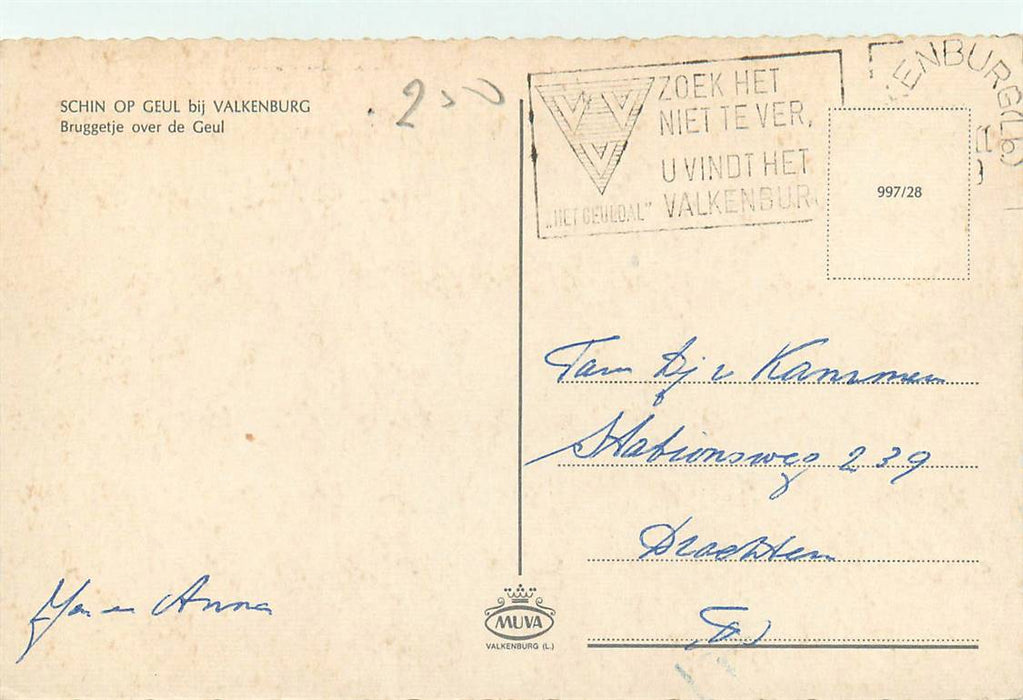 SCHIN OP GEUL bij VALKENBURG
Bruggetje over de Geul
250
VVV
ZOEK HET
NIET TE VER,
U VINDT HET
„HET GEULDAL" VALKENBUR
KENBURG (Lb)
997/28
Fam Dj v Kammen
Stationsweg 239
Drachten
Jan en Anna
MUVA
VALKENBURG (L.)